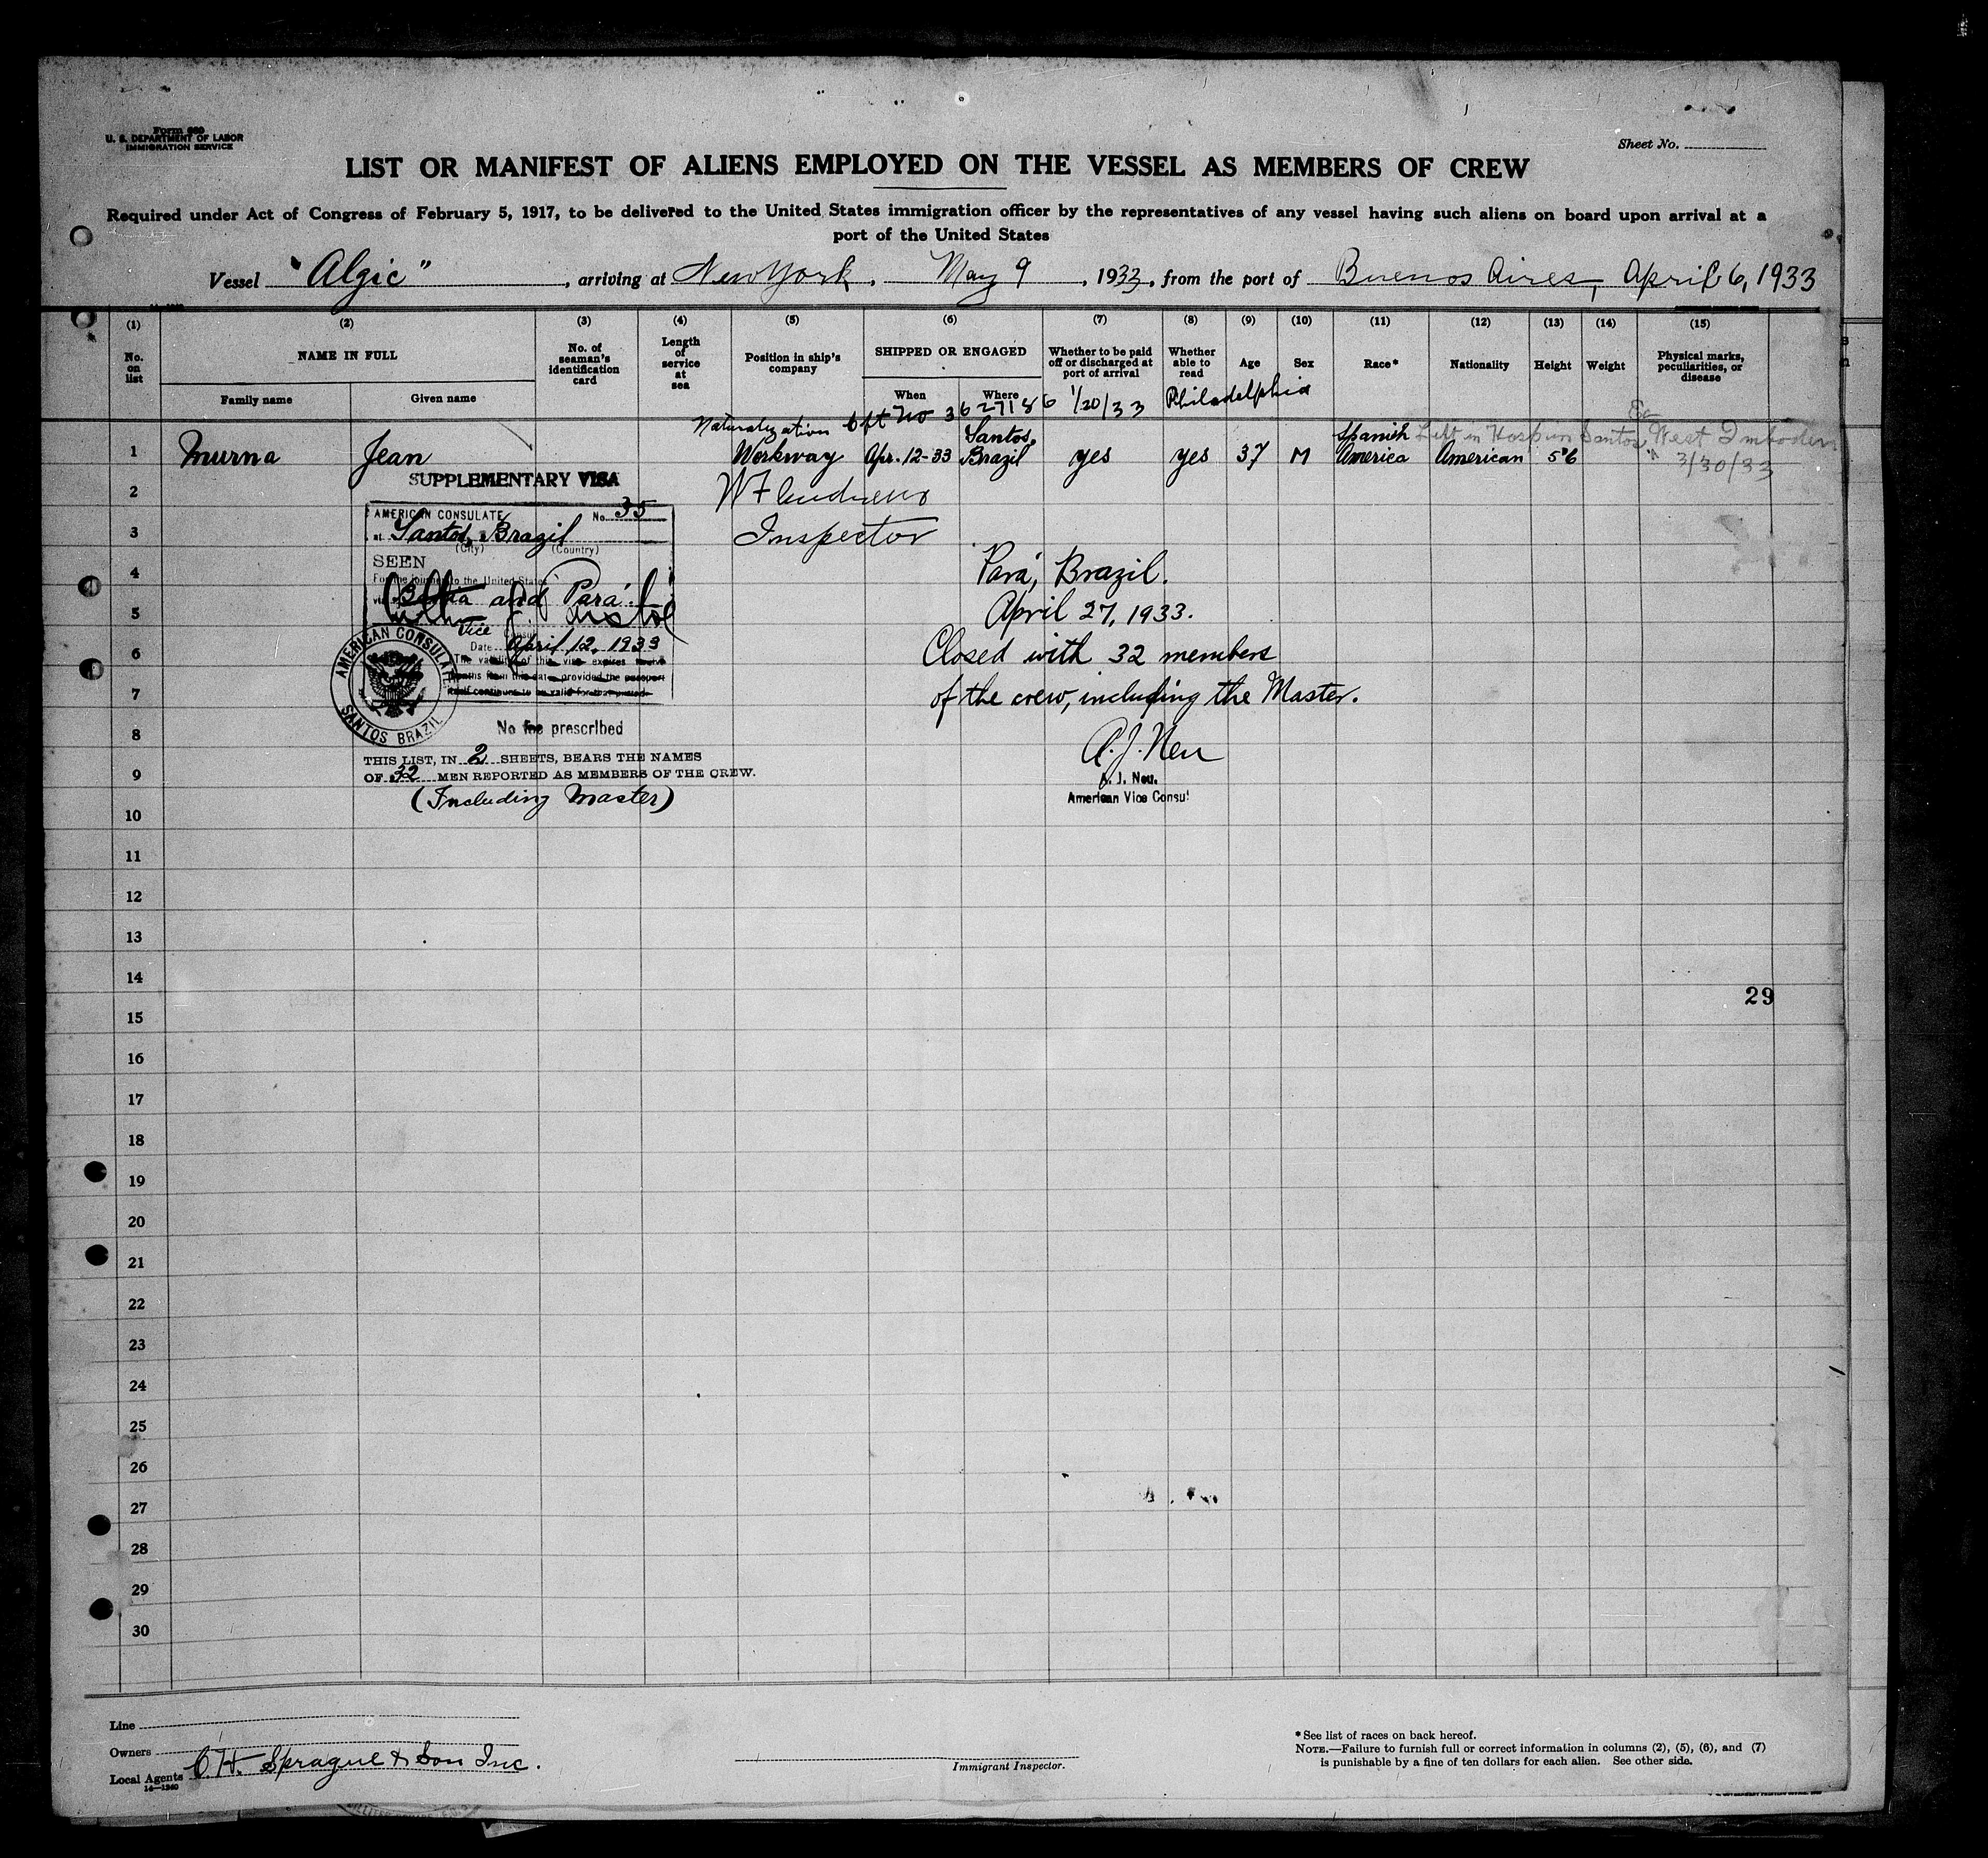 Form 680
U. S. DEPARTMENT OF LABOR
IMMIGRATION SERVICE
Sheet No.
LIST OR MANIFEST OF ALIENS EMPLOYED ON THE VESSEL AS MEMBERS OF CREW
Required under Act of Congress of February 5, 1917, to be delivered to the United States immigration officer by the representatives of any vessel having such aliens on board upon arrival at a
port of the United States
Vessel "Algic", arriving at New York, May 9, 1933, from the port of Buenos Aires, April 6, 1933
(1) (2) (3) (4) (5) (6) (7) (8) (9) (10) (11) (12) (13) (14) (15)
No. on list
NAME IN FULL
Family name
Given name
No. of seaman's identification card
Length of service at sea
Position in ship's company
SHIPPED OR ENGAGED
When
Where
Whether to be paid off or discharged at port of arrival
Whether able to read
Age
Sex
Race*
Nationality
Height
Weight
Physical marks, peculiarities, or disease
Naturalization Cft No 3627186 1/20/33 Philadelphia
Left in Hosp in Santos West Imboden
3/30/33
1 Murna Jean Workway Apr. 12-33 Santos, Brazil yes yes 37 M Spanish America American 5'6
SUPPLEMENTARY VISA
AMERICAN CONSULATE No. 35
at Santos, Brazil
(City) (Country)
SEEN
For the journey to the United States
via Bahia and Pará
Vice Consul
Date April 12, 1933
The validity of this visa expires twelve
months from this date provided the passport
itself continues to be valid for that period.
AMERICAN CONSULATE
SANTOS BRAZIL
No fee prescribed
THIS LIST, IN 2 SHEETS, BEARS THE NAMES
OF 32 MEN REPORTED AS MEMBERS OF THE CREW.
(Including Master)
W F Andrews
Inspector
Pará, Brazil.
April 27, 1933.
Closed with 32 members
of the crew, including the Master.
A. J. Neu
A. J. Neu.
American Vice Consul
2
3
4
5
6
7
8
9
10
11
12
13
14
29
15
16
17
18
19
20
21
22
23
24
25
26
27
28
29
30
Line
Owners
Local Agents C. H. Sprague & Son Inc.
14—1240
Immigrant Inspector.
* See list of races on back hereof.
NOTE.—Failure to furnish full or correct information in columns (2), (5), (6), and (7)
is punishable by a fine of ten dollars for each alien. See other side.